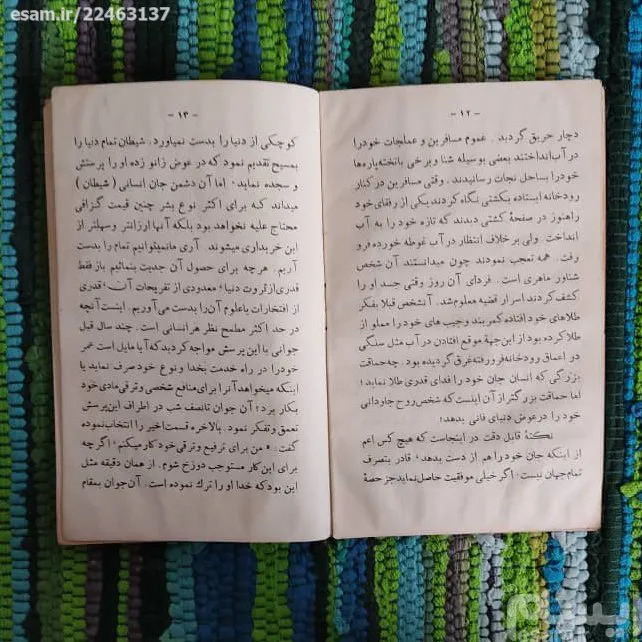 esam.ir/22463137
- ۱۲ -
دچار حریق گردید . عموم مسافرین و عملجات خودرا
در آب انداختند بعضی بوسیله شنا و برخی با تخته پاره‌ها
خودرا بساحل نجات رسانیدند . وقتی مسافرین در کنار
رودخانه ایستاده بکشتی نگاه کردند یکی از رفقای خود
راهنوز در صفحهٔ کشتی دیدند که تازه خود را به آب
انداخت . ولی بر خلاف انتظار در آب غوطه خورده فرو
رفت . همه تعجب نمودند چون میدانستند آن شخص
شناور ماهری است . فردای آن روز وقتی جسد او را
کشف کردند اسرار قضیه معلوم شد . آنشخص قبلا بفکر
طلاهای خود افتاده کمر بند و جیب های خود را مملو از
طلا کرده بود از این جهة موقع افتادن در آب مثل سنگی
در اعماق رودخانه فرو رفته غرق گردیده بود . چه حماقت
بزرگی که انسان جان خود را فدای قدری طلا نماید ؛
اما حماقت بزرگتر از آن اینست که شخص روح جاودانی
خود را در عوض دنیای فانی بدهد ؛
نکتهٔ قابل دقت در اینجاست که هیچ کس اعم
از اینکه جان خود را هم از دست بدهد ؛ قادر بتصرف
تمام جهان نیست ؛ اگر خیلی موفقیت حاصل نماید جز حصهٔ
- ۱۳ -
کوچکی از دنیا را بدست نمیاورد . شیطان تمام دنیا را
بمسیح تقدیم نمود که در عوض زانو زده او را پرستش
و سجده نماید ؛ اما آن دشمن جان انسانی ( شیطان )
میداند که برای اکثر نوع بشر چنین قیمت گزافی
محتاج علیه نخواهد بود بلکه آنها ارزانتر و سهلتر از
این خریداری میشوند . آری ما نمیتوانیم تمام را بدست
آریم . هر چه برای حصول آن جدیت بنمائیم باز فقط
قدری از ثروت دنیا ؛ معدودی از تفریحات آن ؛ قدری
از افتخارات یا علوم آن را بدست می آوریم . اینست آنچه
در حد اکثر مطمح نظر هر انسانی است . چند سال قبل
جوانی با این پرسش مواجه گردید که آیا مایل است عمر
خودرا در راه خدمت بخدا و نوع خود صرف نماید یا
اینکه میخواهد آنرا برای منافع شخصی و ترقی مادی خود
بکار برد ؛ آن جوان تا نصف شب در اطراف این پرسش
تعمق و تفکر نمود . بالاخره قسمت اخیر را انتخاب نموده
گفت . « من برای ترفیع و ترقی خود کار میکنم » اگر چه
برای این کار مستوجب دوزخ شوم . از همان دقیقه مثل
این بود که خدا او را ترك نموده است . آن جوان بمقام